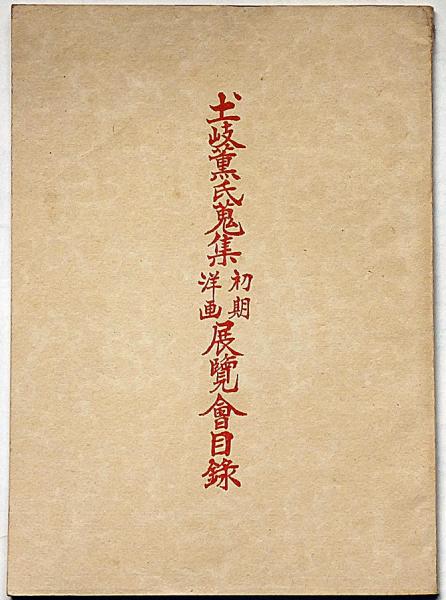 土岐薫氏蒐集
初期
洋画
展覽會目錄